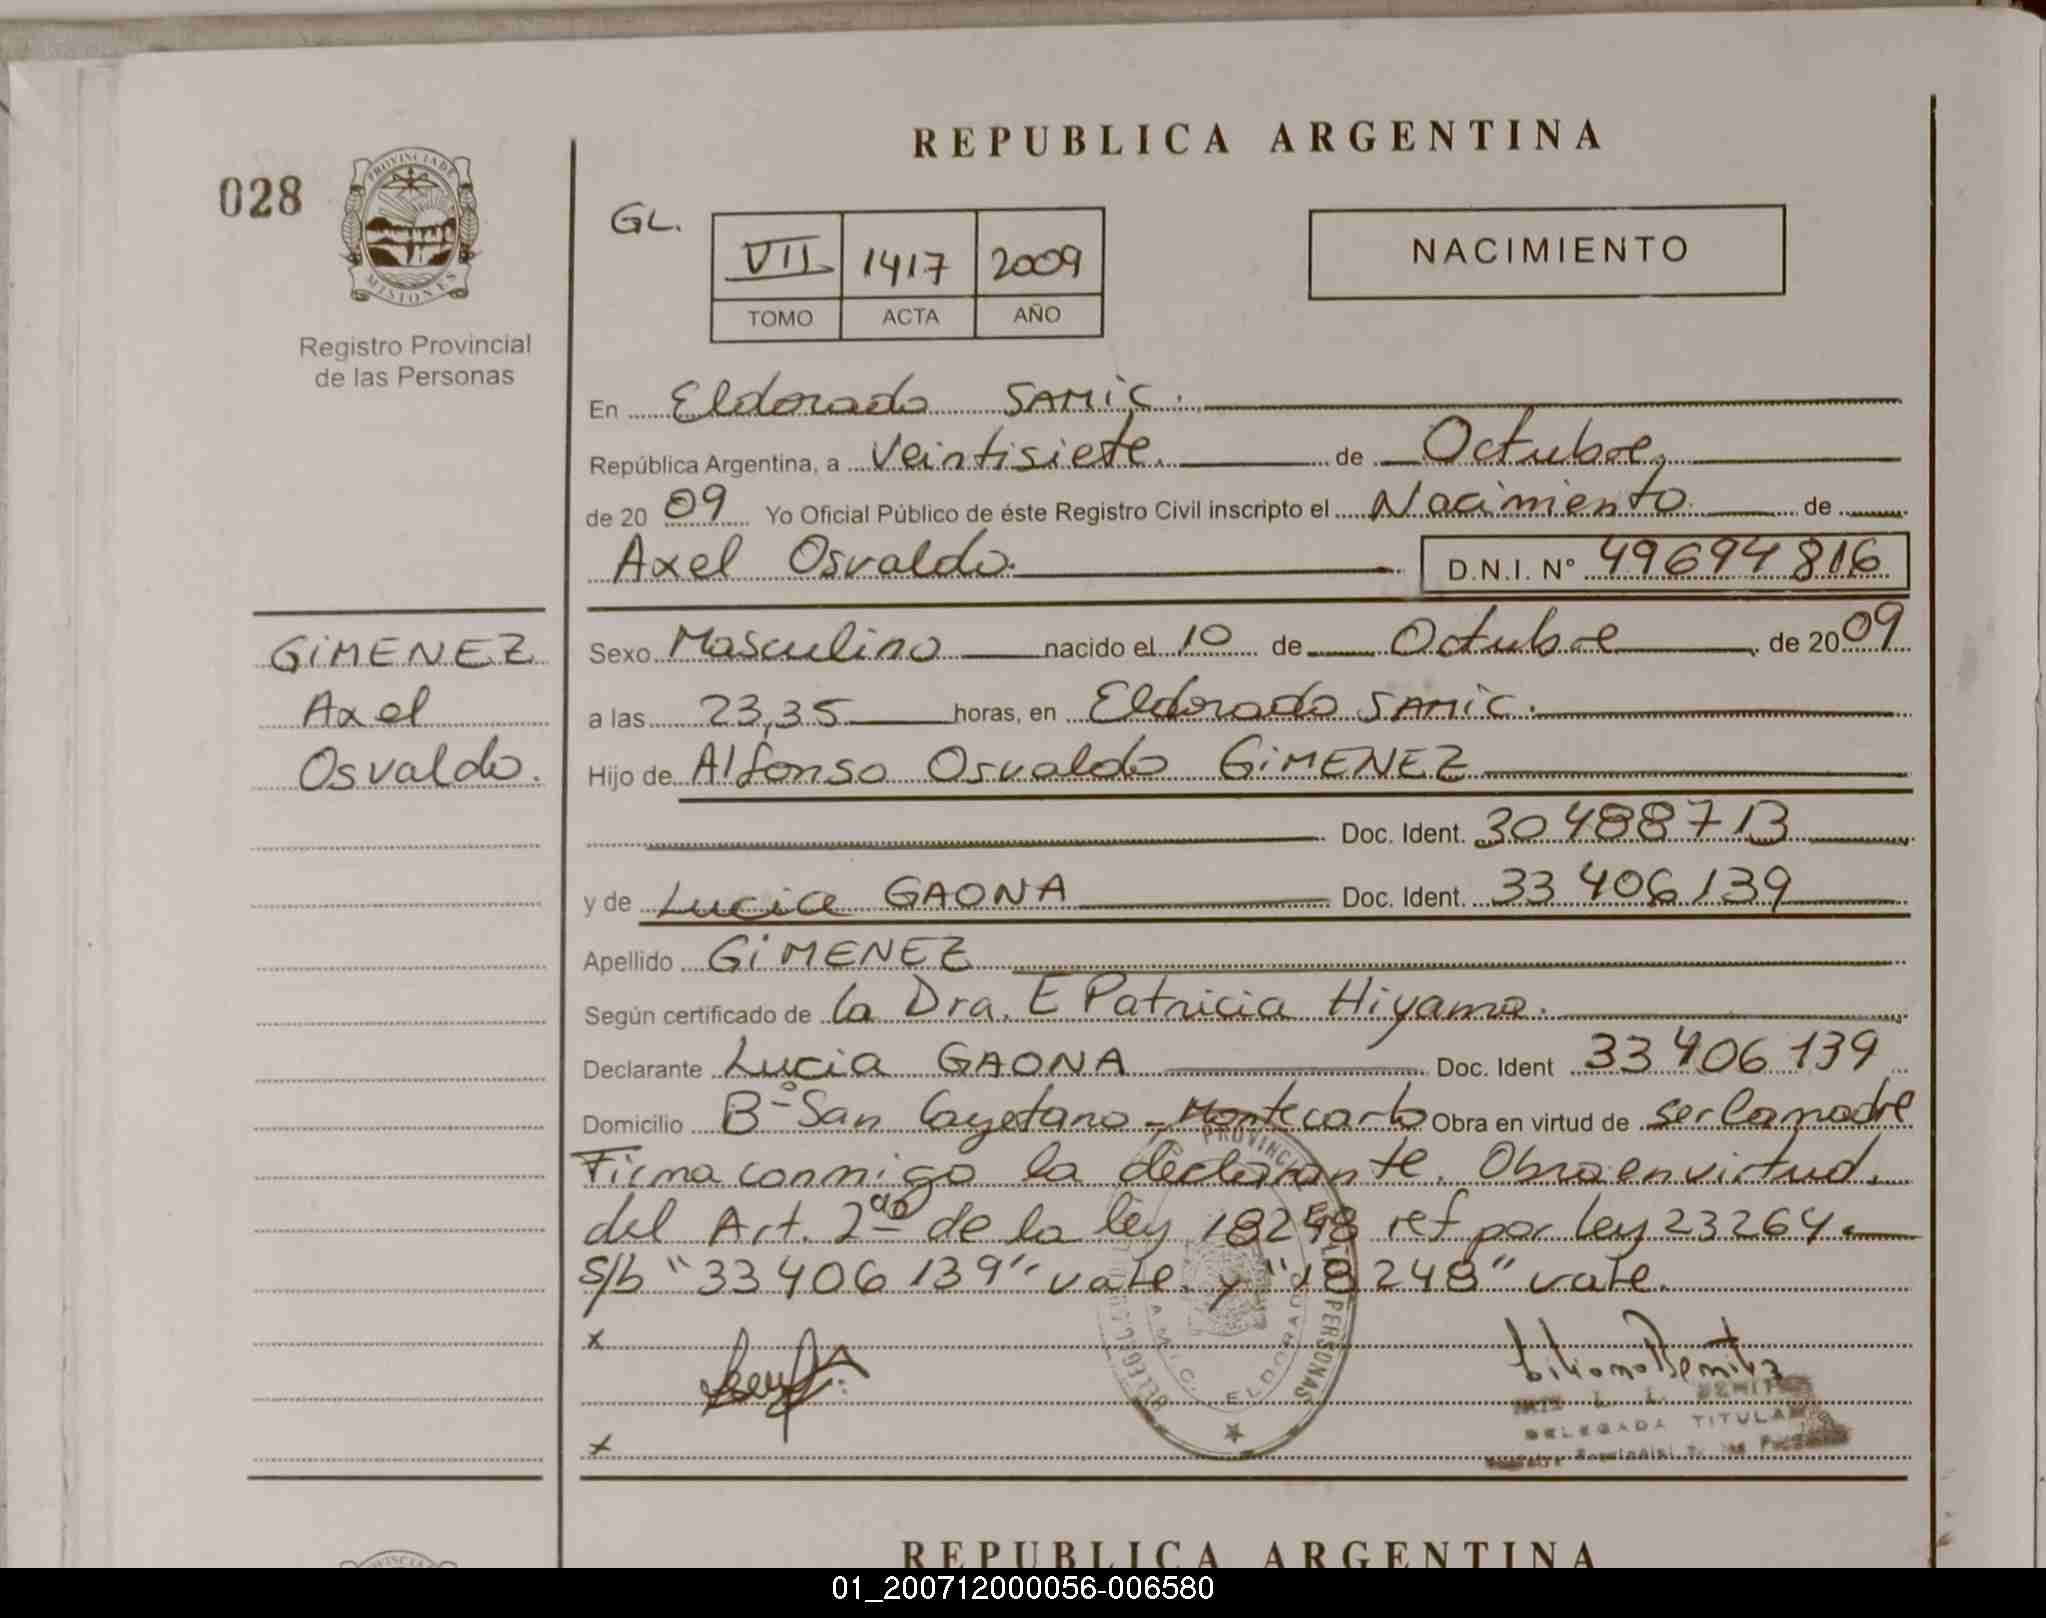 REPUBLICA ARGENTINA
028
PROVINCIA DE
MISIONES
Registro Provincial
de las Personas
GL.
VII 1417 2009
TOMO ACTA AÑO
NACIMIENTO
En Eldorado SAMIC.
República Argentina, a Veintisiete. de Octubre,
de 20 09 Yo Oficial Público de éste Registro Civil inscripto el Nacimiento de
Axel Osvaldo. D.N.I. N° 49694816
GIMENEZ
Axel
Osvaldo.
Sexo Masculino nacido el 10 de Octubre de 20 09
a las 23,35 horas, en Eldorado SAMIC.
Hijo de Alfonso Osvaldo GIMENEZ
Doc. Ident. 30488713
y de Lucia GAONA Doc. Ident. 33406139
Apellido GIMENEZ
Según certificado de la Dra. E Patricia Hiyama.
Declarante Lucia GAONA Doc. Ident 33406139
Domicilio B° San Cayetano - Montecarlo Obra en virtud de ser la madre
Firma conmigo la declarante. Obra en virtud
del Art. 2do de la ley 18248 ref por ley 23264.
S/b "33406139" vale y "18248" vale.
x
x
PROVINCIAL DE LAS PERSONAS
ELDORADO
DELEGADA TITULAR
REPUBLICA ARGENTINA
01_200712000056-006580